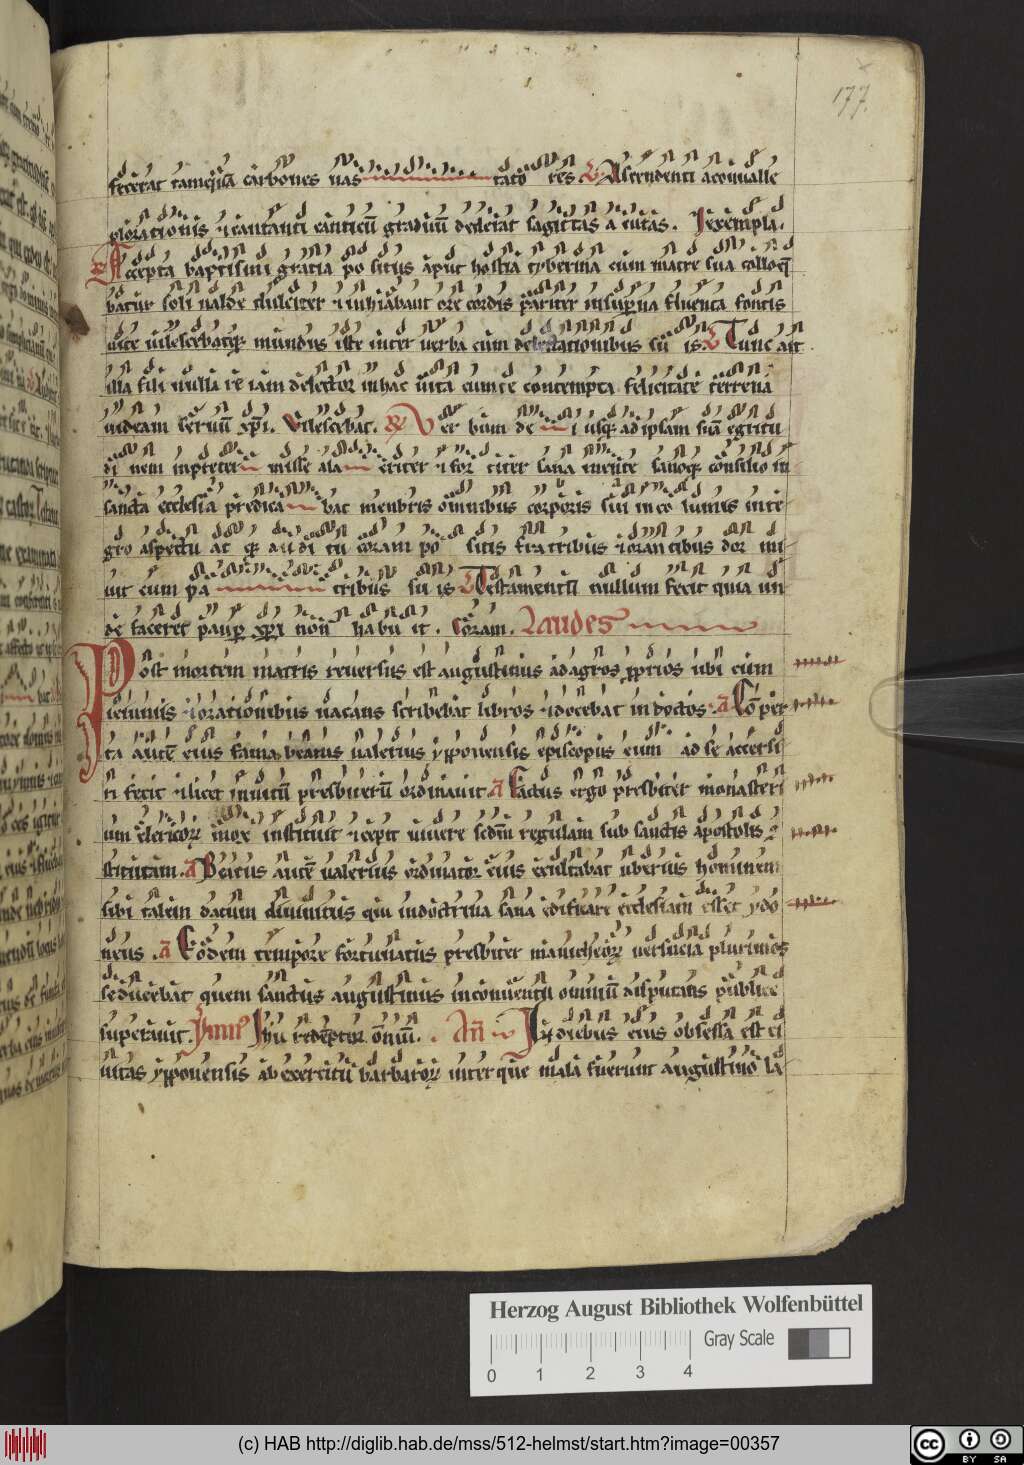 177.
fecerat tamquã carbones uas tato res V Ascendenti aconualle
plorationis ⁊ cantanti canticũ graduũ dederat sagittas acutas. Iexempla.
R Accepta baptismi gratia po situs aput hostia tyberina cum matre sua colloq̃
batur soli ualde dulciter ⁊ inhiabant ore cordis pariter in sup̃na fluenta fontis
uite uilescebatq; mundus iste inter uerba cum delectationibus su is V Tunc ait
illa fili nulla rẽ iam delector in hac uita cum te contempta felicitate terrena
uideam seruũ xp̃i. Vilescebat. R Ver bum de i usq; ad ipsam suã egritu
di nem inpreter misse ala criter ⁊ for titer sana mente sanoq; consilio in
sancta ecclesia predica bat menbris omnibus corporis sui in co lumis inte
gro aspectu at q; au di tu coram po sitis fratribus ⁊ orantibus dor mi
uit cum pa tribus su is V Testamentũ nullum fecit quia un
de faceret paup̃ xp̃i non habu it. Coram. Laudes
Post mortem matris reuersus est augustinus ad agros proprios ubi cum
ieiuniis ⁊ orationibus uacans scribebat libros ⁊ docebat indoctos. a Cõper
ta autẽ eius fama beatus ualerius ypponensis episcopus eum ad se accersi
ri fecit ⁊ licet inuitũ presbiterũ ordinauit a Factus ergo presbiter monasteri
um clericorꝝ mox instituit ⁊ cepit uiuere scdm̃ regulam sub sanctis apostolis 9
stitutam. a Beatus autẽ ualerius ordinator eius exultabat uberius hominem
sibi talem datum diuinitus qui in doctrina sana edificare ecclesiam esset ydo
neus. a Eodem tempore fortunatus presbiter manicheorꝝ uersucia plurimos
seducebat quem sanctus augustinus in conuentu omniũ disputans publice
superauit. Ymn9 Ihu redẽptor omniũ. An̄ In diebus eius obsessa est ci
uitas ypponensis ab exercitu barbarorꝝ inter que mala fuerunt augustino la
Herzog August Bibliothek Wolfenbüttel
Gray Scale
0 1 2 3 4
(c) HAB http://diglib.hab.de/mss/512-helmst/start.htm?image=00357
cc BY SA